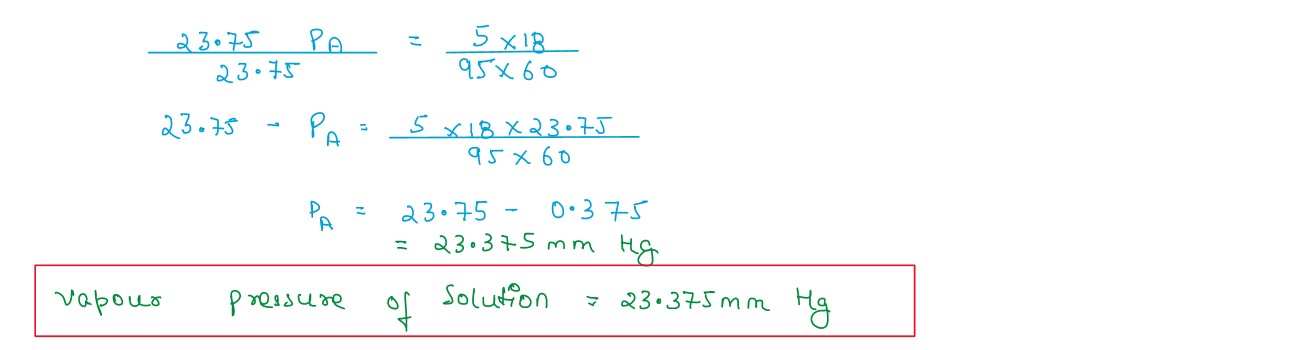 23.75 P_A / 23.75 = 5 × 18 / 95 × 60
23.75 - P_A = 5 × 18 × 23.75 / 95 × 60
P_A = 23.75 - 0.375
= 23.375 mm Hg
vapour pressure of solution = 23.375 mm Hg